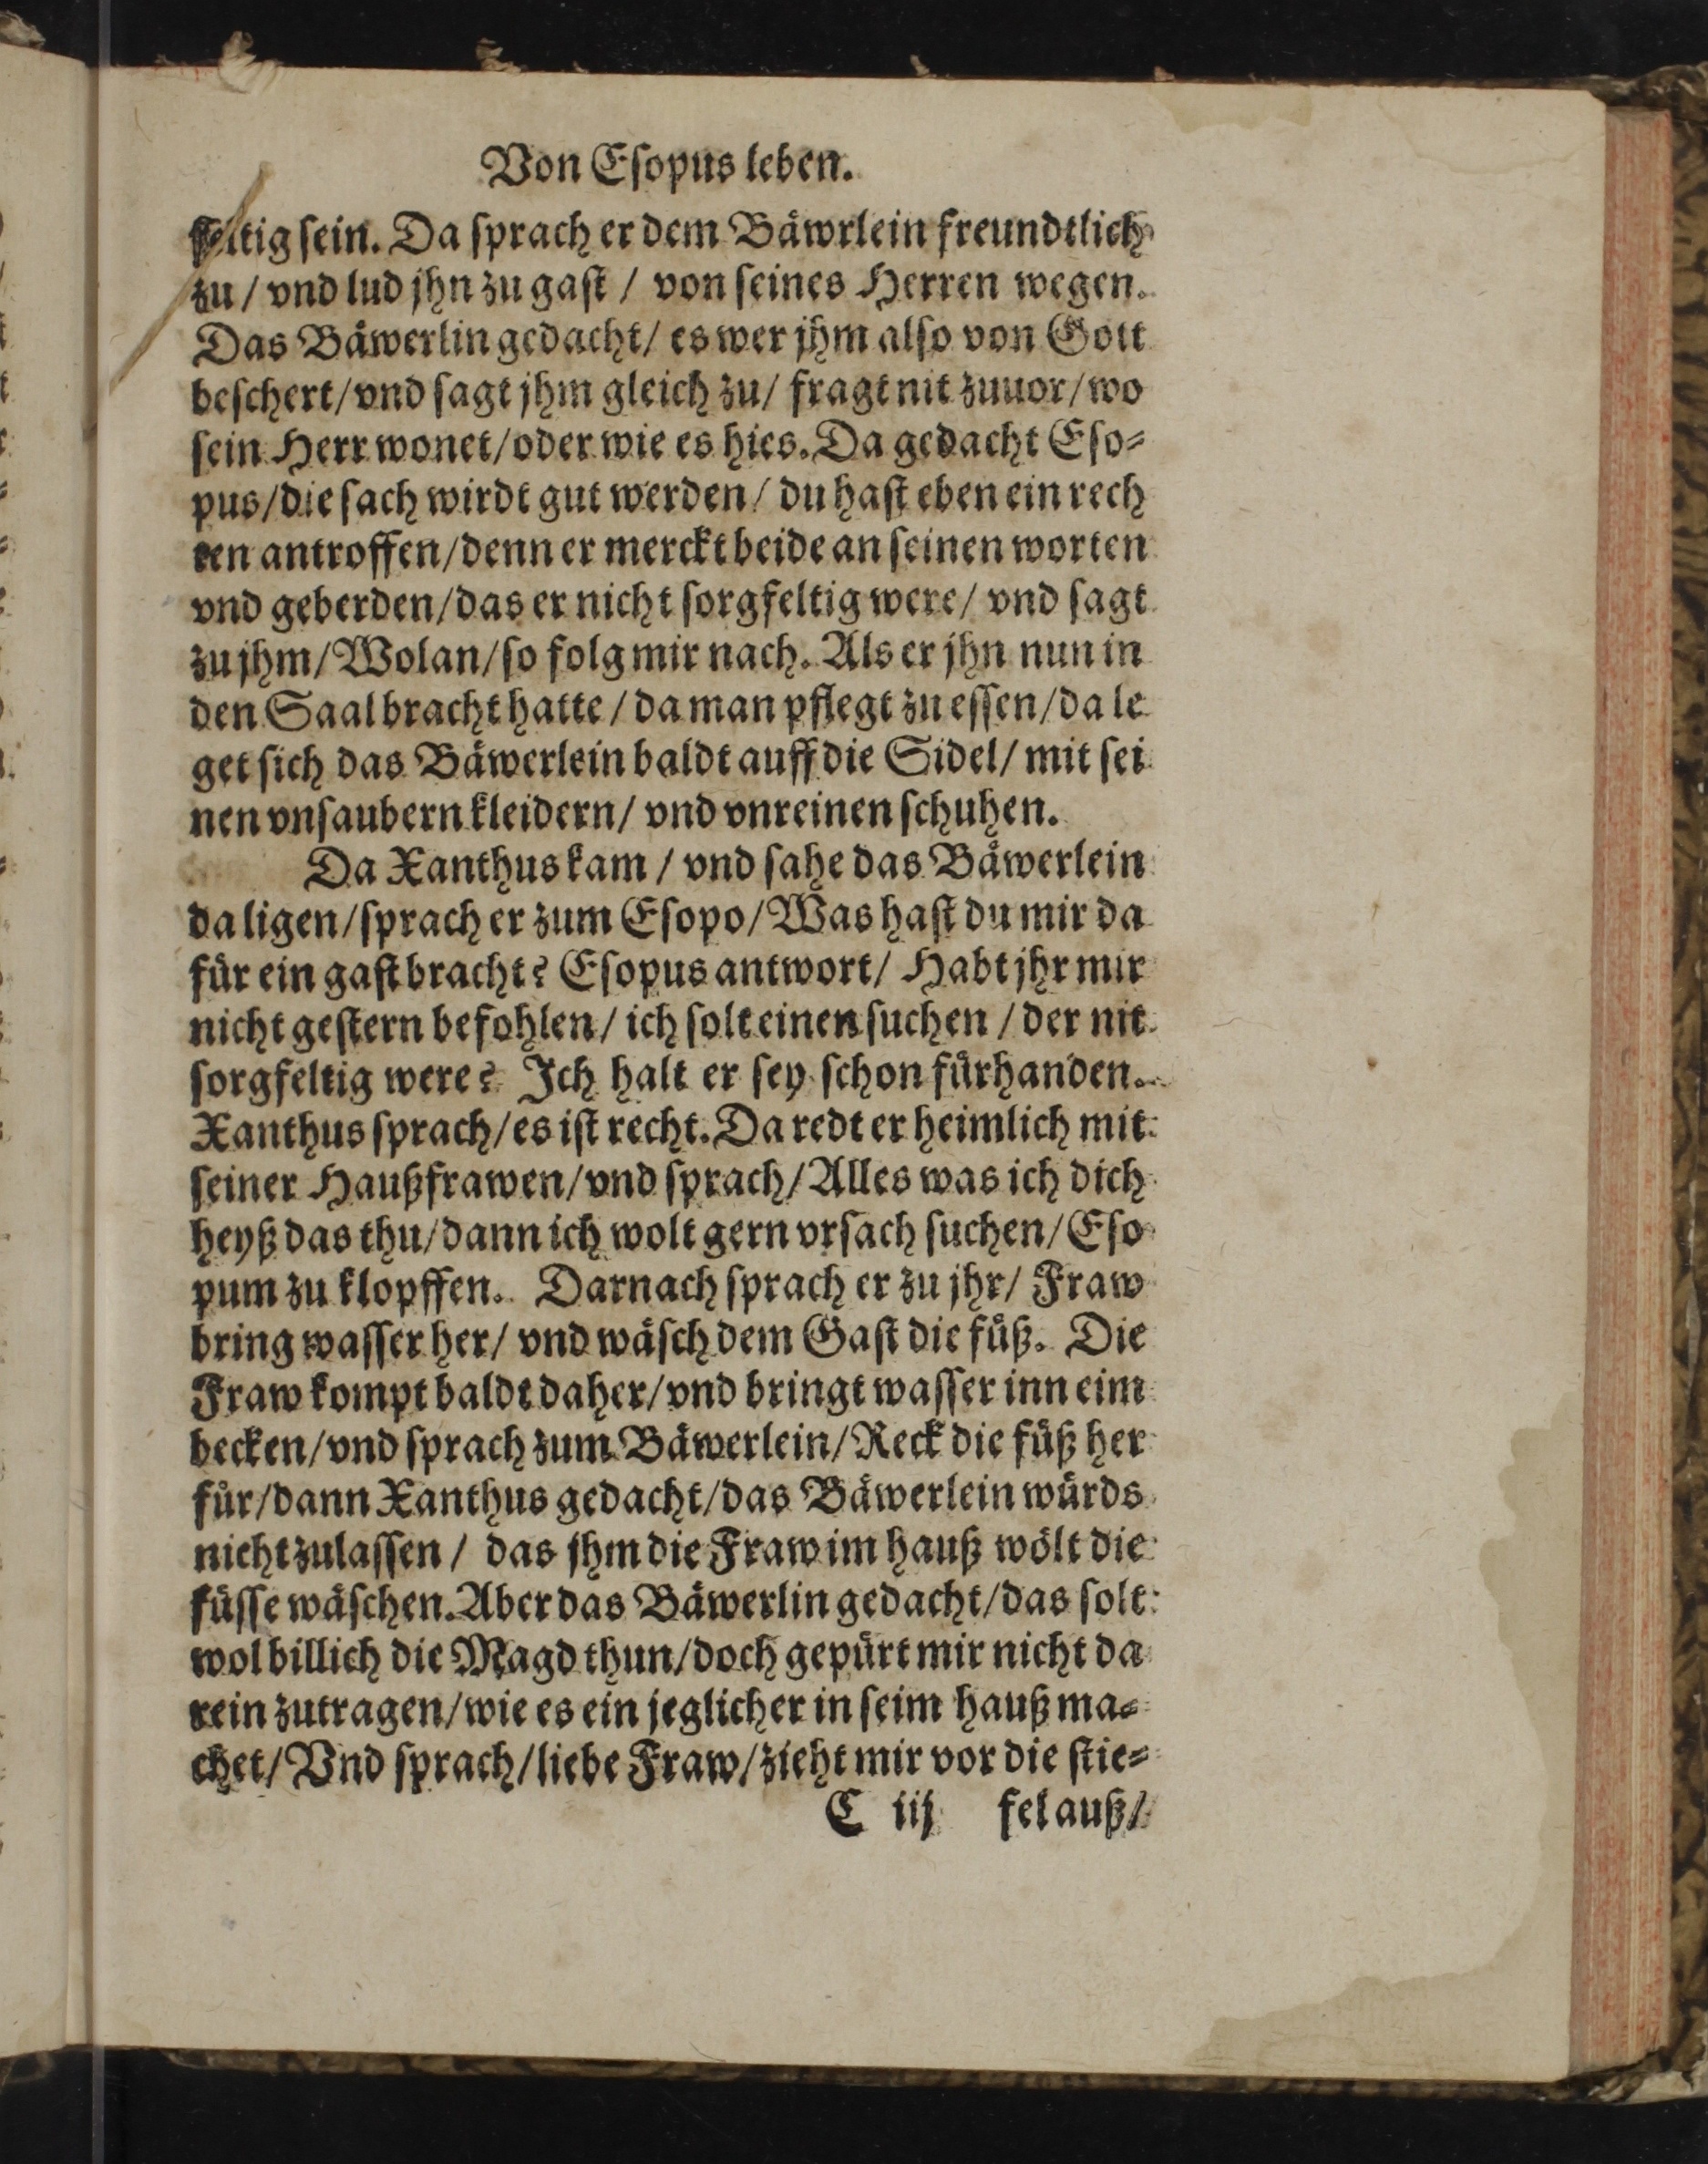 Von Eſopus leben.
feltig ſein. Da ſprach er dem Bäwrlein freundtlich
zu / vnd lud jhn zu gaſt / von ſeines Herren wegen.
Das Bäwerlin gedacht / es wer jhm alſo von Gott
beſchert / vnd ſagt jhm gleich zu / fragt nit zuuor / wo
ſein Herr wonet / oder wie es hies. Da gedacht Eſo⸗
pus / die ſach wirdt gut werden / du haſt eben ein rech
ten antroffen / denn er merckt beide an ſeinen worten
vnd geberden / das er nicht ſorgfeltig were / vnd ſagt
zu jhm / Wolan / ſo folg mir nach. Als er jhn nun in
den Saal bracht hatte / da man pflegt zu eſſen / da le
get ſich das Bäwerlein baldt auff die Sidel / mit ſei
nen vnſaubern kleidern / vnd vnreinen ſchuhen.
Da Xanthus kam / vnd ſahe das Bäwerlein
da ligen / ſprach er zum Eſopo / Was haſt du mir da
für ein gaſt bracht? Eſopus antwort / Habt jhr mir
nicht geſtern befohlen / ich ſolt einen ſuchen / der nit
ſorgfeltig were? Ich halt er ſey ſchon fürhanden.
Xanthus ſprach / es iſt recht. Da redt er heimlich mit
ſeiner Haußfrawen / vnd ſprach / Alles was ich dich
heyß das thu / dann ich wolt gern vrſach ſuchen / Eſo
pum zu klopffen. Darnach ſprach er zu jhr / Fraw
bring waſſer her / vnd wäſch dem Gaſt die füß. Die
Fraw kompt baldt daher / vnd bringt waſſer inn eim
becken / vnd ſprach zum Bäwerlein / Reck die füß her
für / dann Xanthus gedacht / das Bäwerlein würds
nicht zulaſſen / das jhm die Fraw im hauß wölt die
füſſe wäſchen. Aber das Bäwerlin gedacht / das ſolt
wol billich die Magd thun / doch gepürt mir nicht da
rein zutragen / wie es ein jeglicher in ſeim hauß ma⸗
chet / Vnd ſprach / liebe Fraw / zieht mir vor die ſtie⸗
C iij fel auß /